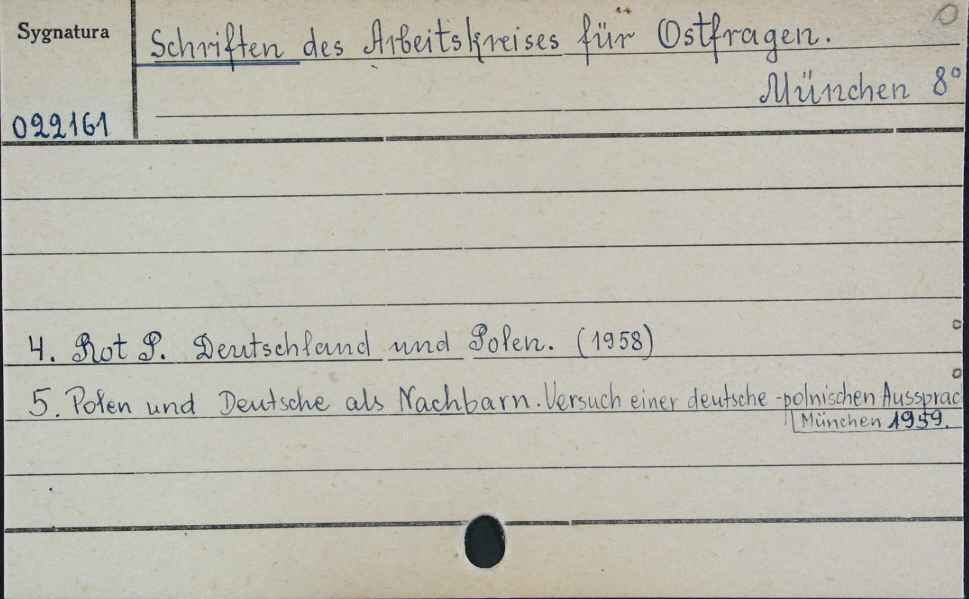 Sygnatura
Schriften des Arbeitskreises für Ostfragen.
München 8°
022161
4. Rot P. Deutschland und Polen. (1958)
5. Polen und Deutsche als Nachbarn. Versuch einer deutsche-polnischen Aussprac
München 1959.